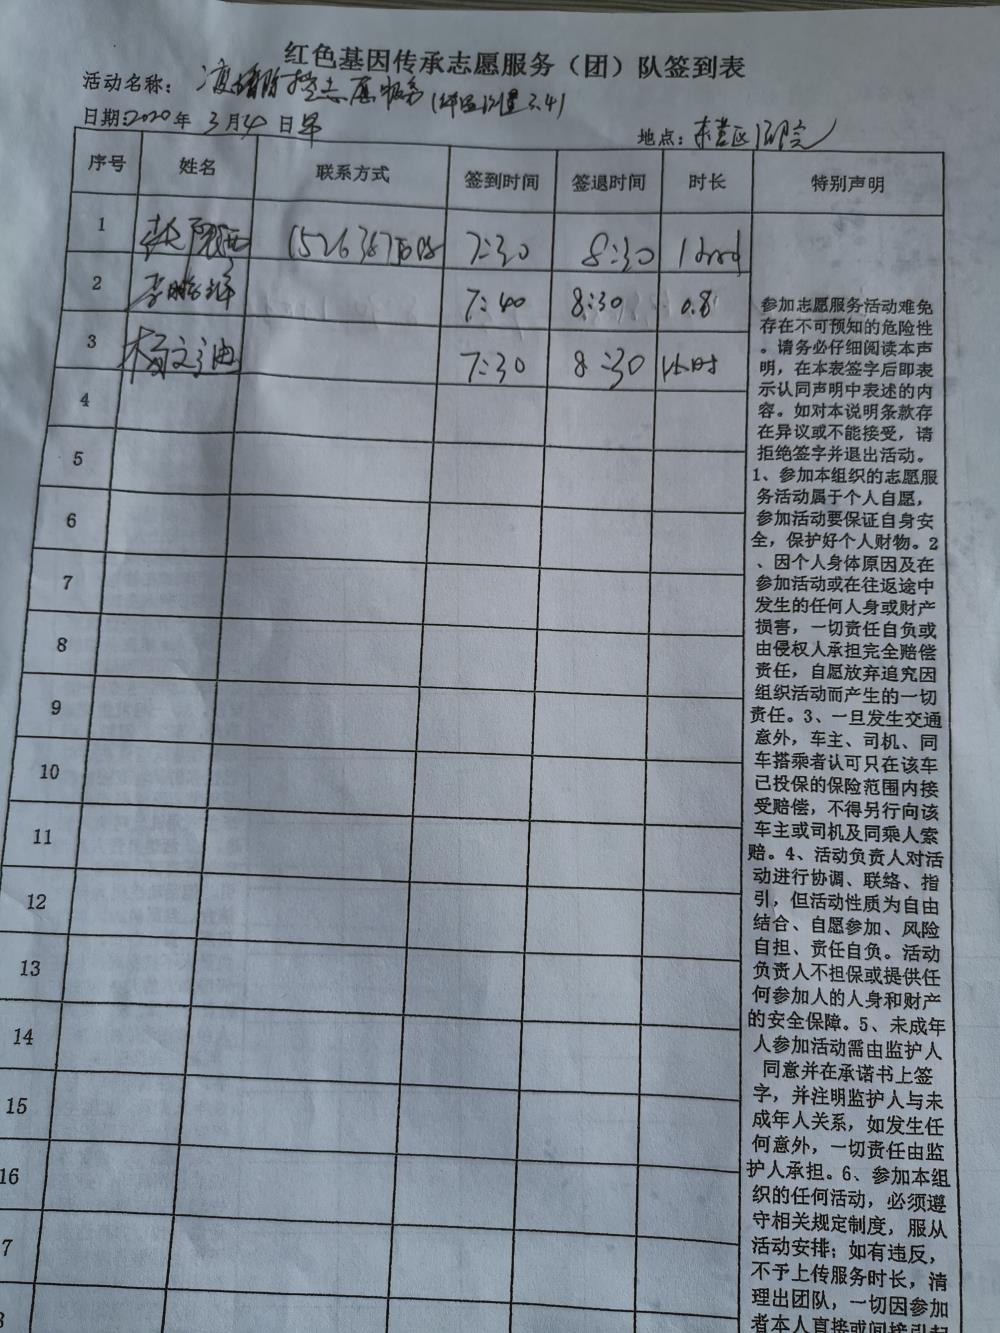 红色基因传承志愿服务（团）队签到表
活动名称： 疫情防控志愿服务
日期:2020年 3月4日早
地点：东营区
序号 姓名 联系方式 签到时间 签退时间 时长 特别声明
1 7:30 8:30
2 7:40 8:30 0.8
3 7:30 8:30 1小时
4
5
6
7
8
9
10
11
12
13
14
15
16
7
参加志愿服务活动难免
存在不可预知的危险性
。请务必仔细阅读本声
明，在本表签字后即表
示认同声明中表述的内
容。如对本说明条款存
在异议或不能接受，请
拒绝签字并退出活动。
1、参加本组织的志愿服
务活动属于个人自愿，
参加活动要保证自身安
全，保护好个人财物。2
、因个人身体原因及在
参加活动或在往返途中
发生的任何人身或财产
损害，一切责任自负或
由侵权人承担完全赔偿
责任，自愿放弃追究因
组织活动而产生的一切
责任。3、一旦发生交通
意外，车主、司机、同
车搭乘者认可只在该车
已投保的保险范围内接
受赔偿，不得另行向该
车主或司机及同乘人索
赔。4、活动负责人对活
动进行协调、联络、指
引，但活动性质为自由
结合、自愿参加、风险
自担、责任自负。活动
负责人不担保或提供任
何参加人的人身和财产
的安全保障。5、未成年
人参加活动需由监护人
同意并在承诺书上签
字，并注明监护人与未
成年人关系，如发生任
何意外，一切责任由监
护人承担。6、参加本组
织的任何活动，必须遵
守相关规定制度，服从
活动安排；如有违反，
不予上传服务时长，清
理出团队，一切因参加
者本人直接或间接引起